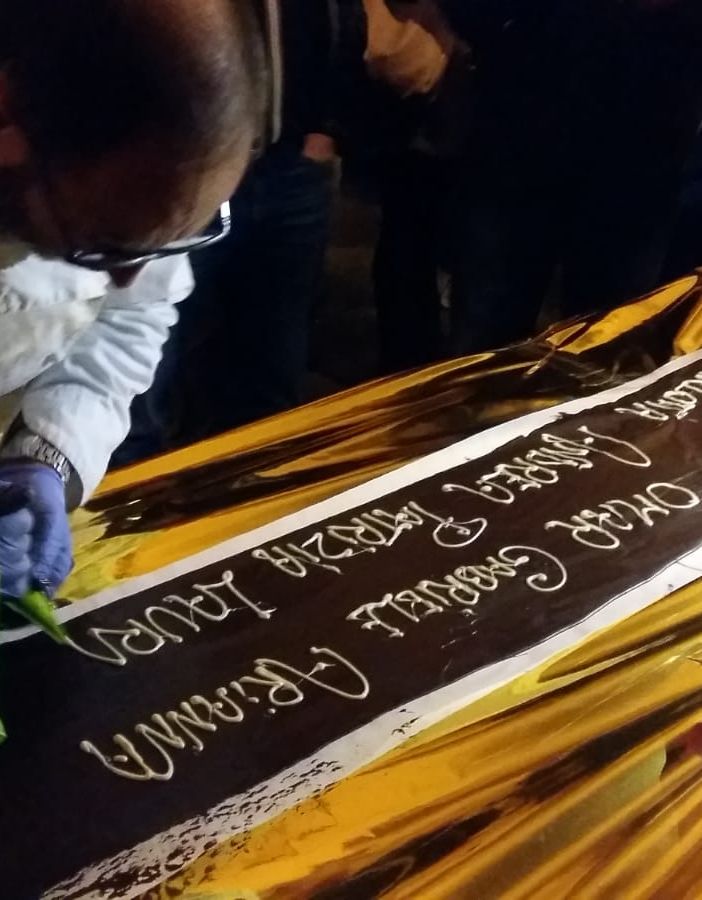 OMAR GABRIELE ARIANNA
ANDREA PATRIZIA LAURA